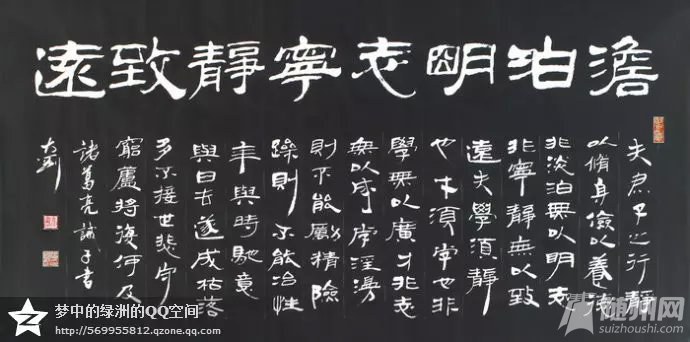 澹泊明志寧靜致遠
夫君子之行靜
以脩身儉以養德
非淡泊無以明志
非寧靜無以致
遠夫學須靜
也才須學也非
學無以廣才非志
無以成學淫漫
則不能勵精險
躁則不能冶性
年與時馳意
與日去遂成枯落
多不接世悲守
窮廬將復何及
諸葛亮誡子書
梦中的绿洲的QQ空间
http://569955812.qzone.qq.com/
随州网
suizhoushi.com